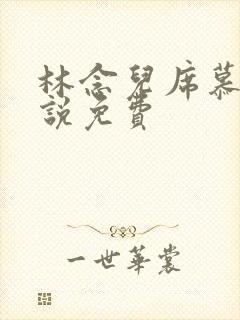 林念兒席慕
說免費
一世華裳